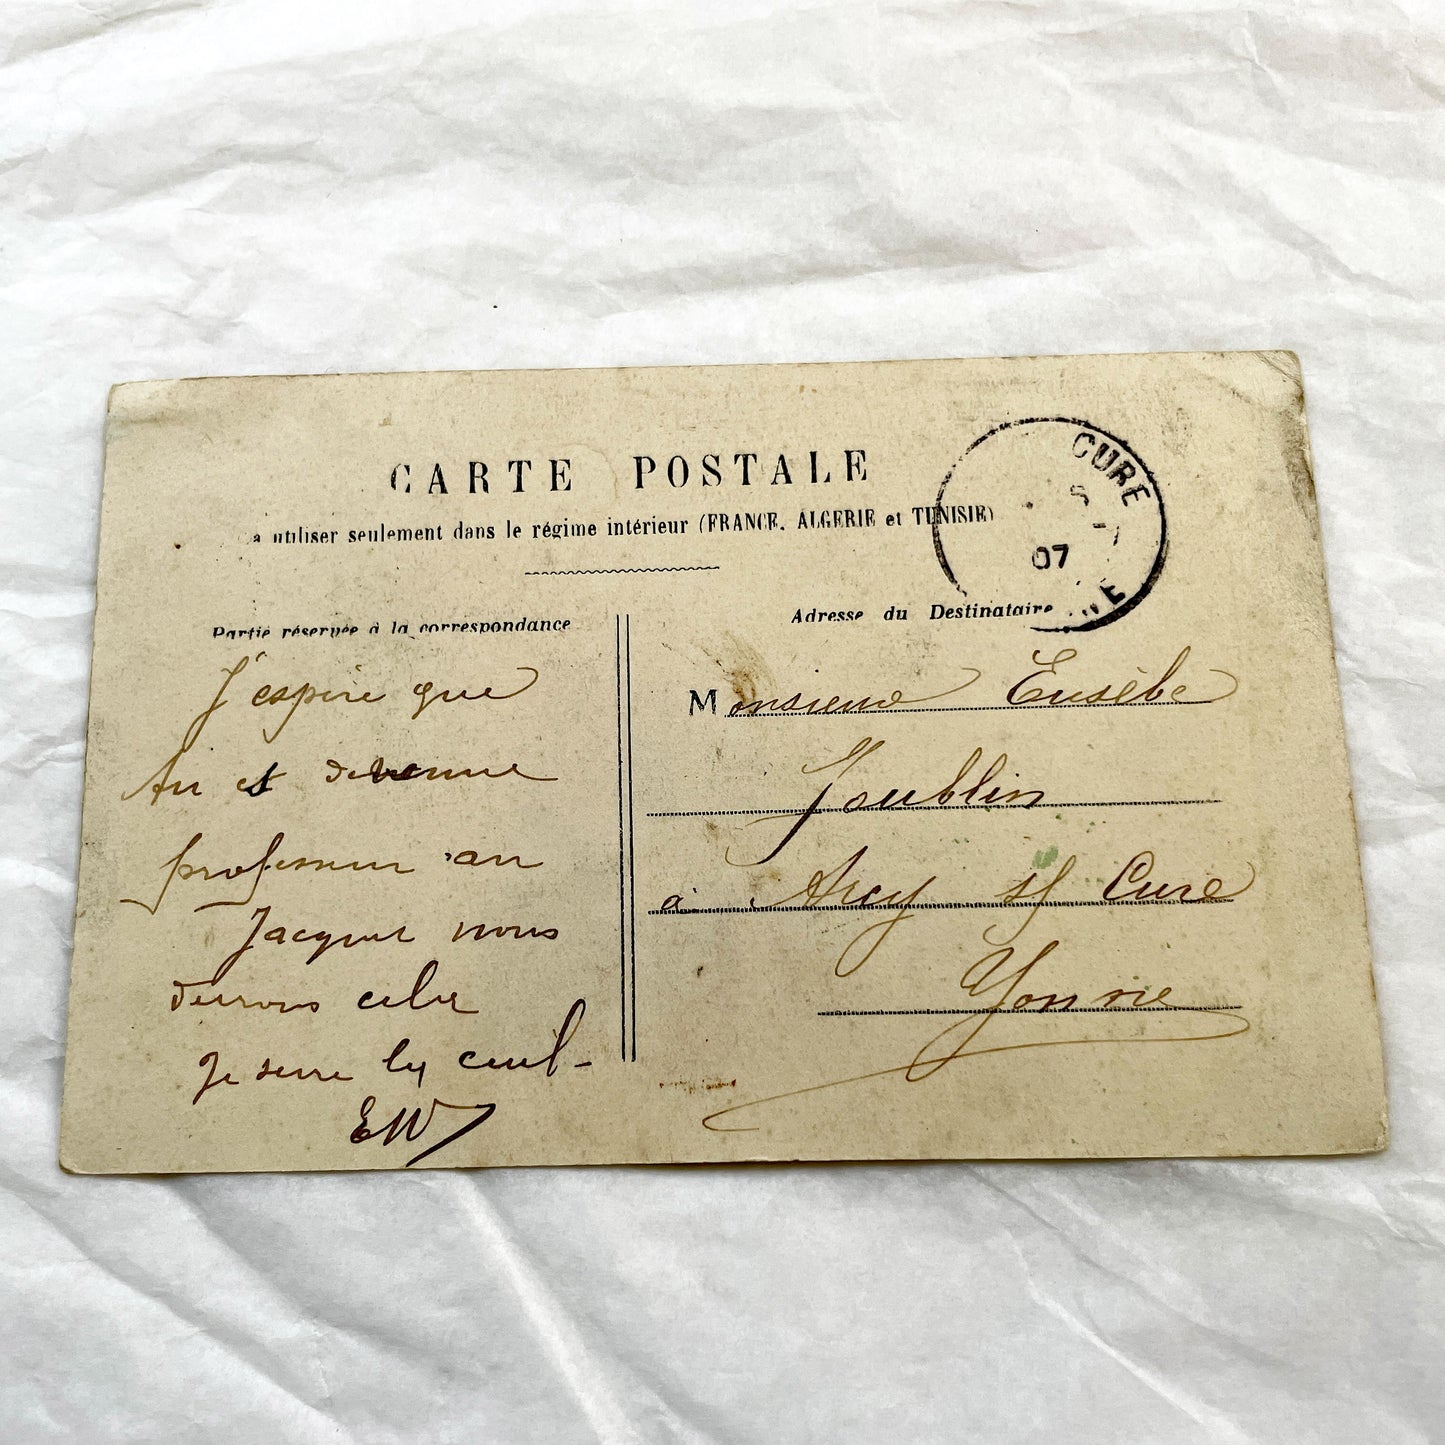 CARTE POSTALE
a utiliser seulement dans le régime intérieur (FRANCE, ALGERIE et TUNISIE)
Partie réservée à la correspondance
J'espère que
tu es devenue
professeur au
Jacquet nous
devrons cela
Je serre la
EW
Adresse du Destinataire
Monsieur Eusèbe
Joublin
à Arcy s/ Cure
Yonne
CURE
07
NE